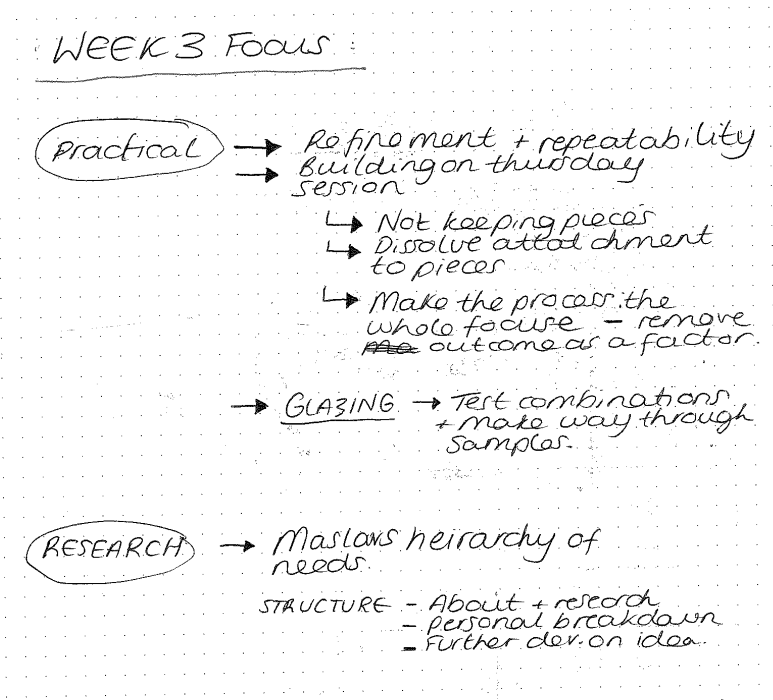 WEEK 3 FOCUS :
Practical → Refinement + repeatability
→ Building on thursday
session
↳ Not keeping pieces
↳ Dissolve attatchment
to pieces
↳ Make the process the
whole focuse – remove
outcome as a factor.
→ GLAZING → Test combinations
+ make way through
samples.
RESEARCH → Maslows heirarchy of
needs
STRUCTURE – About + research
– personal breakdown
– Further dev. on idea.